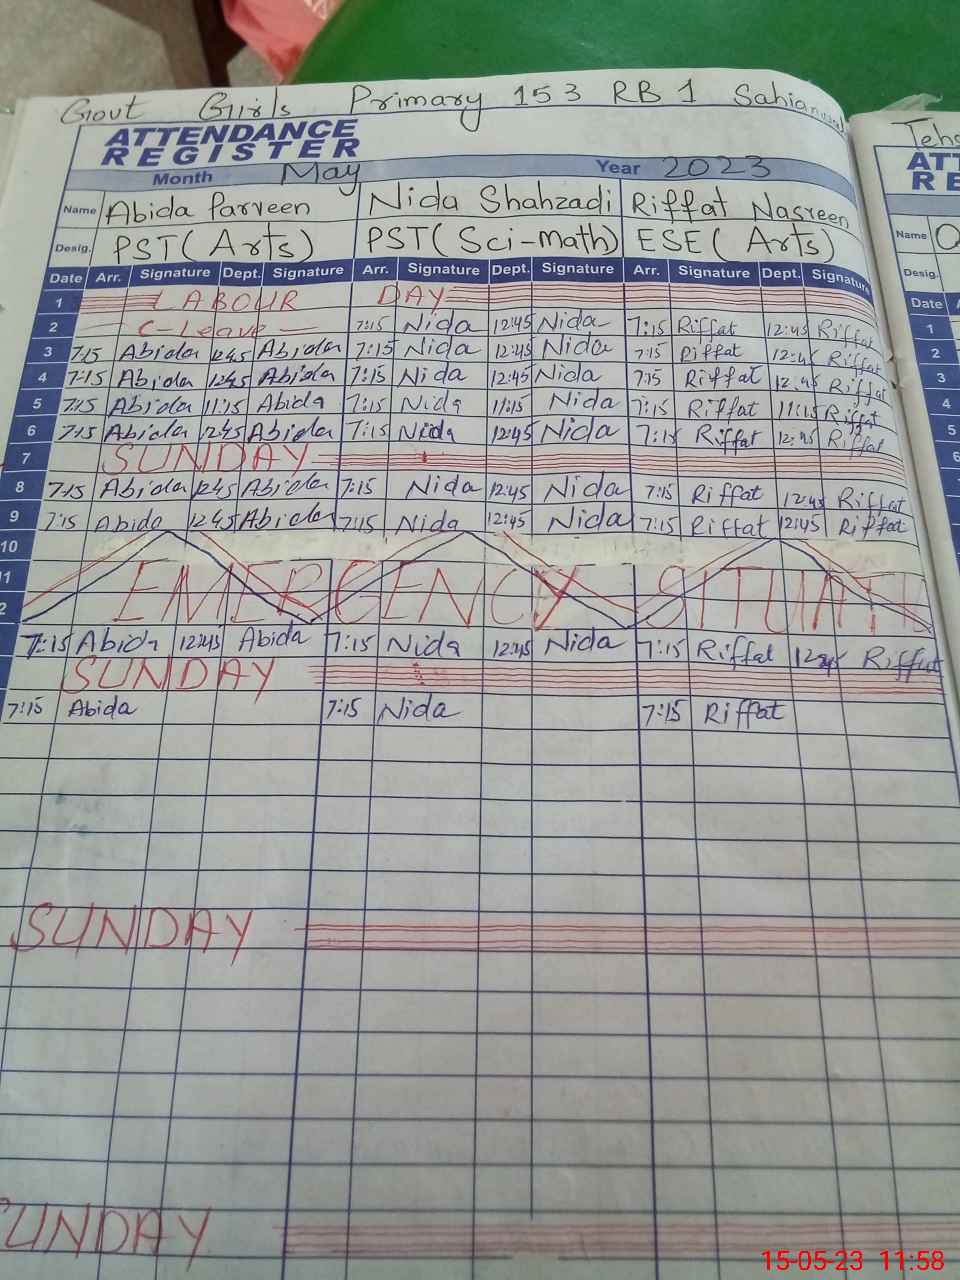 Govt Girls Primary 153 RB 1
ATTENDANCE
REGISTER
Month May Year 2023
Name Abida Parveen Nida Shahzadi Riffat Nasreen
Desig. PST (Arts) PST (Sci-math) ESE (Arts)
Date Arr. Signature Dept. Signature Arr. Signature Dept. Signature Arr. Signature Dept. Signature
1 LABOUR DAY
2 C-Leave 7:15 Nida 12:45 Nida 7:15 Riffat 12:45 Riffat
3 7:15 Abida 12:45 Abida 7:15 Nida 12:45 Nida 7:15 Riffat 12:45 Riffat
4 7:15 Abida 12:45 Abida 7:15 Nida 12:45 Nida 7:15 Riffat 12:45 Riffat
5 7:15 Abida 11:15 Abida 7:15 Nida 11:15 Nida 7:15 Riffat 11:15 Riffat
6 7:15 Abida 12:45 Abida 7:15 Nida 12:45 Nida 7:15 Riffat 12:45 Riffat
7 SUNDAY
8 7:15 Abida 12:45 Abida 7:15 Nida 12:45 Nida 7:15 Riffat 12:45 Riffat
9 7:15 Abida 12:45 Abida 7:15 Nida 12:45 Nida 7:15 Riffat 12:45 Riffat
10
1 EMERGENCY
2
7:15 Abida 12:45 Abida 7:15 Nida 12:45 Nida 7:15 Riffat 12:45 Riffat
SUNDAY
7:15 Abida 7:15 Nida 7:15 Riffat
SUNDAY
SUNDAY
Teh
ATT
RE
Name
Desig.
Date A
1
2
3
4
5
6
15-05-23 11:58